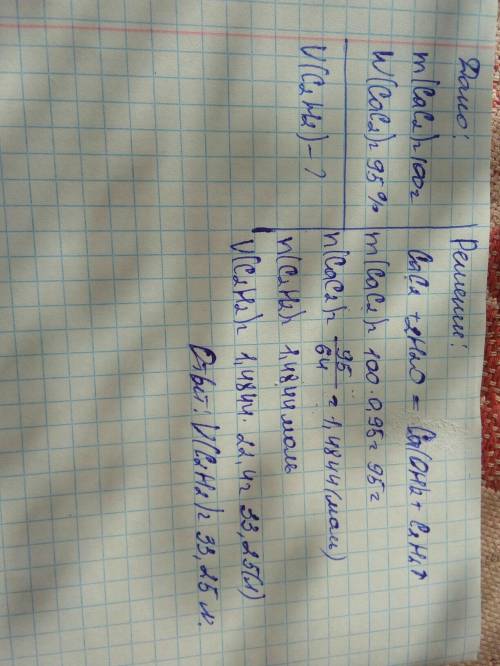 Дано:
m(CaC2)=100г
W(CaC2)=95%
V(C2H2)-?
Решение:
CaC2 + 2H2O = Ca(OH)2 + C2H2↑
m(CaC2)= 100·0,95=95г
n(CaC2)= 95/64 = 1,4844(моль)
n(C2H2)= 1,4844моль
V(C2H2)= 1,4844·22,4=33,25(л)
Ответ: V(C2H2)=33,25л.